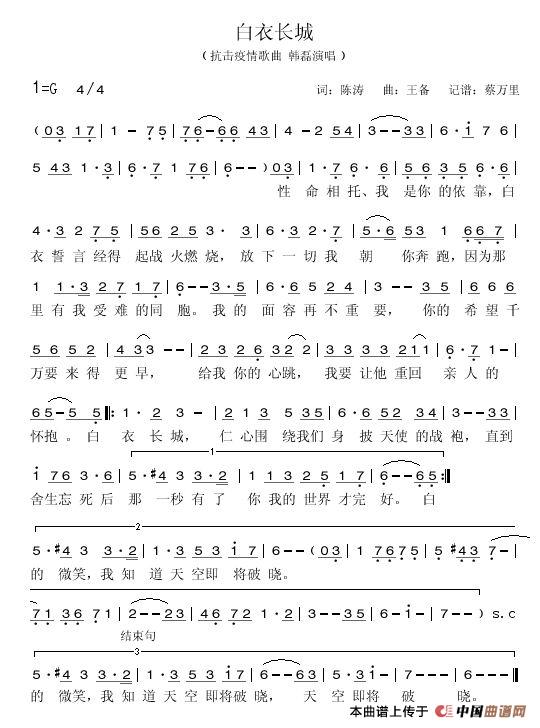 白衣长城
（抗击疫情歌曲 韩磊演唱）
1=G 4/4 词：陈涛 曲：王备 记谱：蔡万里
(03 17 | 1 - 75 | 76-66 43 | 4 - 2 54 | 3--33 | 6·1 7 6 |
5 43 1·3 | 6·7 176 | 6--)03 | 1·7 6· 6 | 5 6 3 5 6·6 |
性 命相托、我 是你的依靠，白
4·3 2 7 5 | 56 2 5 3· 3 | 6 1 2 1 2·7 | 5·6 53 1 667 |
衣誓言经得 起战火燃烧，放下一切我 朝 你奔跑，因为那
1 1·3 2 7 1 7 | 6·3 3·23 | 4·3 2 1 2 1·3 | 6 6 6 6 |
里有我受难的同 胞。我的 面容再不重 要， 你的 希望千
5 6 5 2 | 4 33 - - | 2 3 2 6 32 2 | 3 3 2 3 211 | 6· 7 1 - |
万要来得 更早， 给我你的心跳，我要让他重回 亲人的
65-5 5 ‖: 1· 2 3 - | 5·4 3 1·6 | 6 5 6 52 34 | 3--33 |
怀抱。白 衣长城， 仁心围 绕我们身 披天使的战袍，直到
1
1 76 3·6 | 5·#4 43 3·2 | 1 13 2 5 1 7 | 6--65 :‖
舍生忘 死后 那 一秒有了 你我的世界才完 好。白
2
5·#4 3 3·2 | 1·3 5 3 17 | 6--(03 | 1 7675 | 5 #43 73 | 7---
的 微笑，我知 道天空即 将破晓。
71 36 71 | 2--23 | 46 72 0·1 | 3--3 | 7---) s.c
结束句
3
5·#4 3 3·2 | 1·3 5 3 17 | 6--6 | 1·3 53 | 17-6 | 6---‖
的 微笑，我知 道天空即将破晓， 天空即将 破 晓。
本曲谱上传于 中国曲谱网